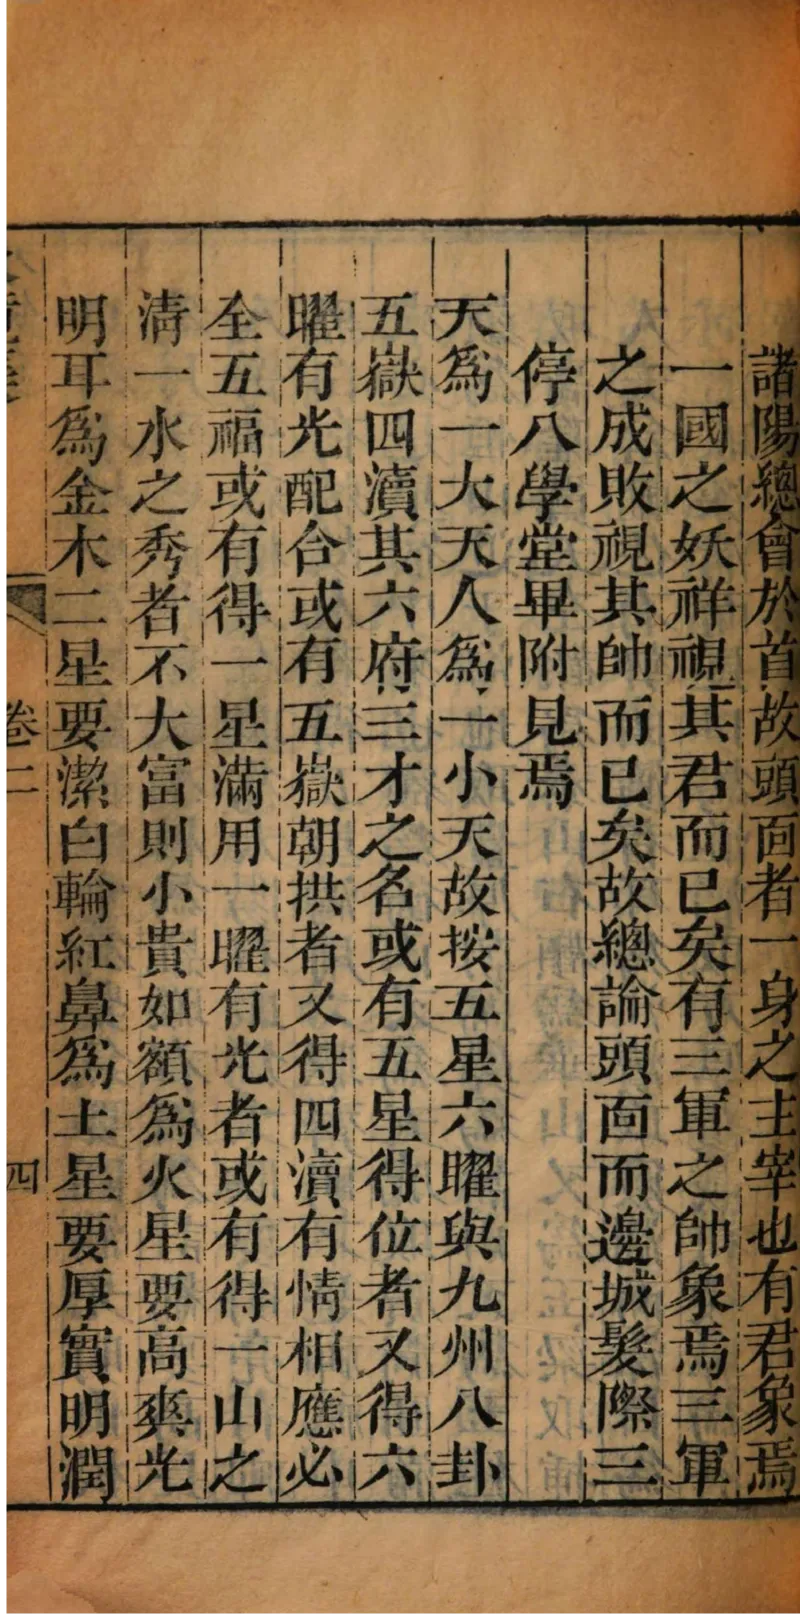 諸陽總會於首故頭面者一身之主宰也有君象焉
一國之妖祥視其君而已矣有三軍之帥象焉三軍
之成敗視其帥而已矣故總論頭面而邊城髮際三
停八學堂畢附見焉
天爲一大天人爲一小天故按五星六曜與九州八卦
五嶽四瀆其六府三才之名或有五星得位者又得六
曜有光配合或有五嶽朝拱者又得四瀆有情相應必
全五福或有得一星滿用一曜有光者或有得一山之
淸一水之秀者不大富則小貴如額爲火星要高爽光
明耳爲金木二星要潔白輪紅鼻爲土星要厚實明潤
卷二
四